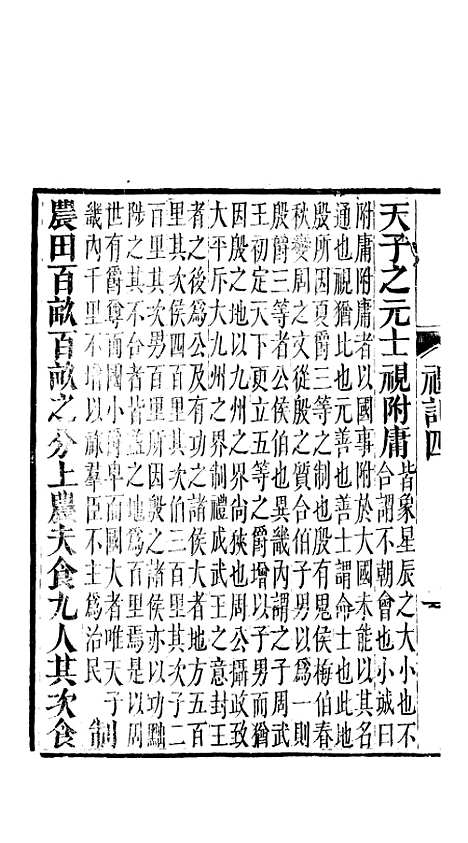 禮記四
一
天子之元士視附庸
皆象星辰之大小也不
合謂不朝會也小城曰
附庸附庸者以國事附於大國未能以其名
通也視猶比也元善也善士謂命士也此地
殷所因夏爵三等之制也殷有鬼侯梅伯春
秋變周之文從殷之質合伯子男以爲一則
殷爵三等者公侯伯也異畿內謂之子周武
王初定天下更立五等之爵增以子男而猶
因殷之地以九州之界尚狹也周公攝政致
大平斥大九州之界制禮成武王之意封王
者之後爲公及有功之諸侯大者地方五百
里其次侯四百里其次伯三百里其次子二
百里其次男百里所因殷之諸侯亦以功黜
陟之其不合者皆益之地爲百里焉是以周
世有爵尊而國小爵卑而國大者唯天子
畿內千里不增以祿羣臣不主爲治民
制
農田百畝百畝之分上農夫食九人其次食